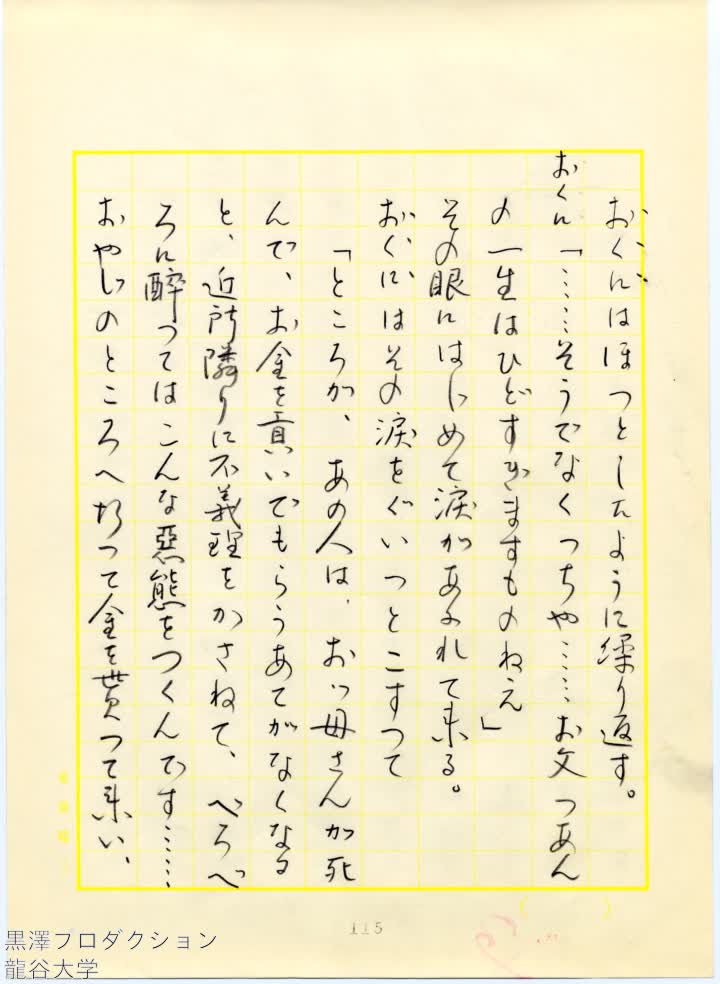 おくにはほつとしたように繰り返す。
おくに「……そうでなくつちや……お文つあん
の一生はひどすぎますものねえ」
その眼にはじめて涙があふれて来る。
おくにはその涙をぐいつとこすつて
「ところが、あの人は、おッ母さんが死
んで、お金を貢いでもらうあてがなくなる
と、近所隣りに不義理をかさねて、べろべ
ろに酔つてはこんな悪態をつくんです……
おやじのところへ行つて金を貰つて来い、
115
黒澤プロダクション
龍谷大学